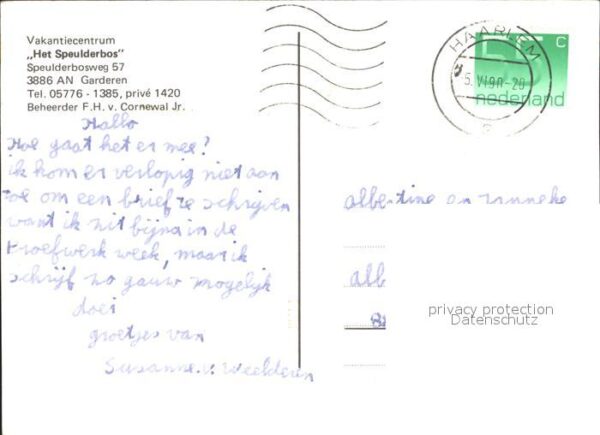 Vakantiecentrum
„Het Speulderbos"
Speulderbosweg 57
3886 AN Garderen
Tel. 05776 - 1385, privé 1420
Beheerder F.H. v. Cornewal Jr.
Hallo
Hoe gaat het er mee?
ik kom er verlopig niet aan
toe om een brief te schrijven
want ik zit bijna in de
proefwerk week, maar ik
schrijf zo gauw mogelijk
doei
groetjes van
Susanne v. Weelderen
HAARLEM
5.VI.90-20
c
nederland
albertine en
alb
privacy protection
Datenschutz